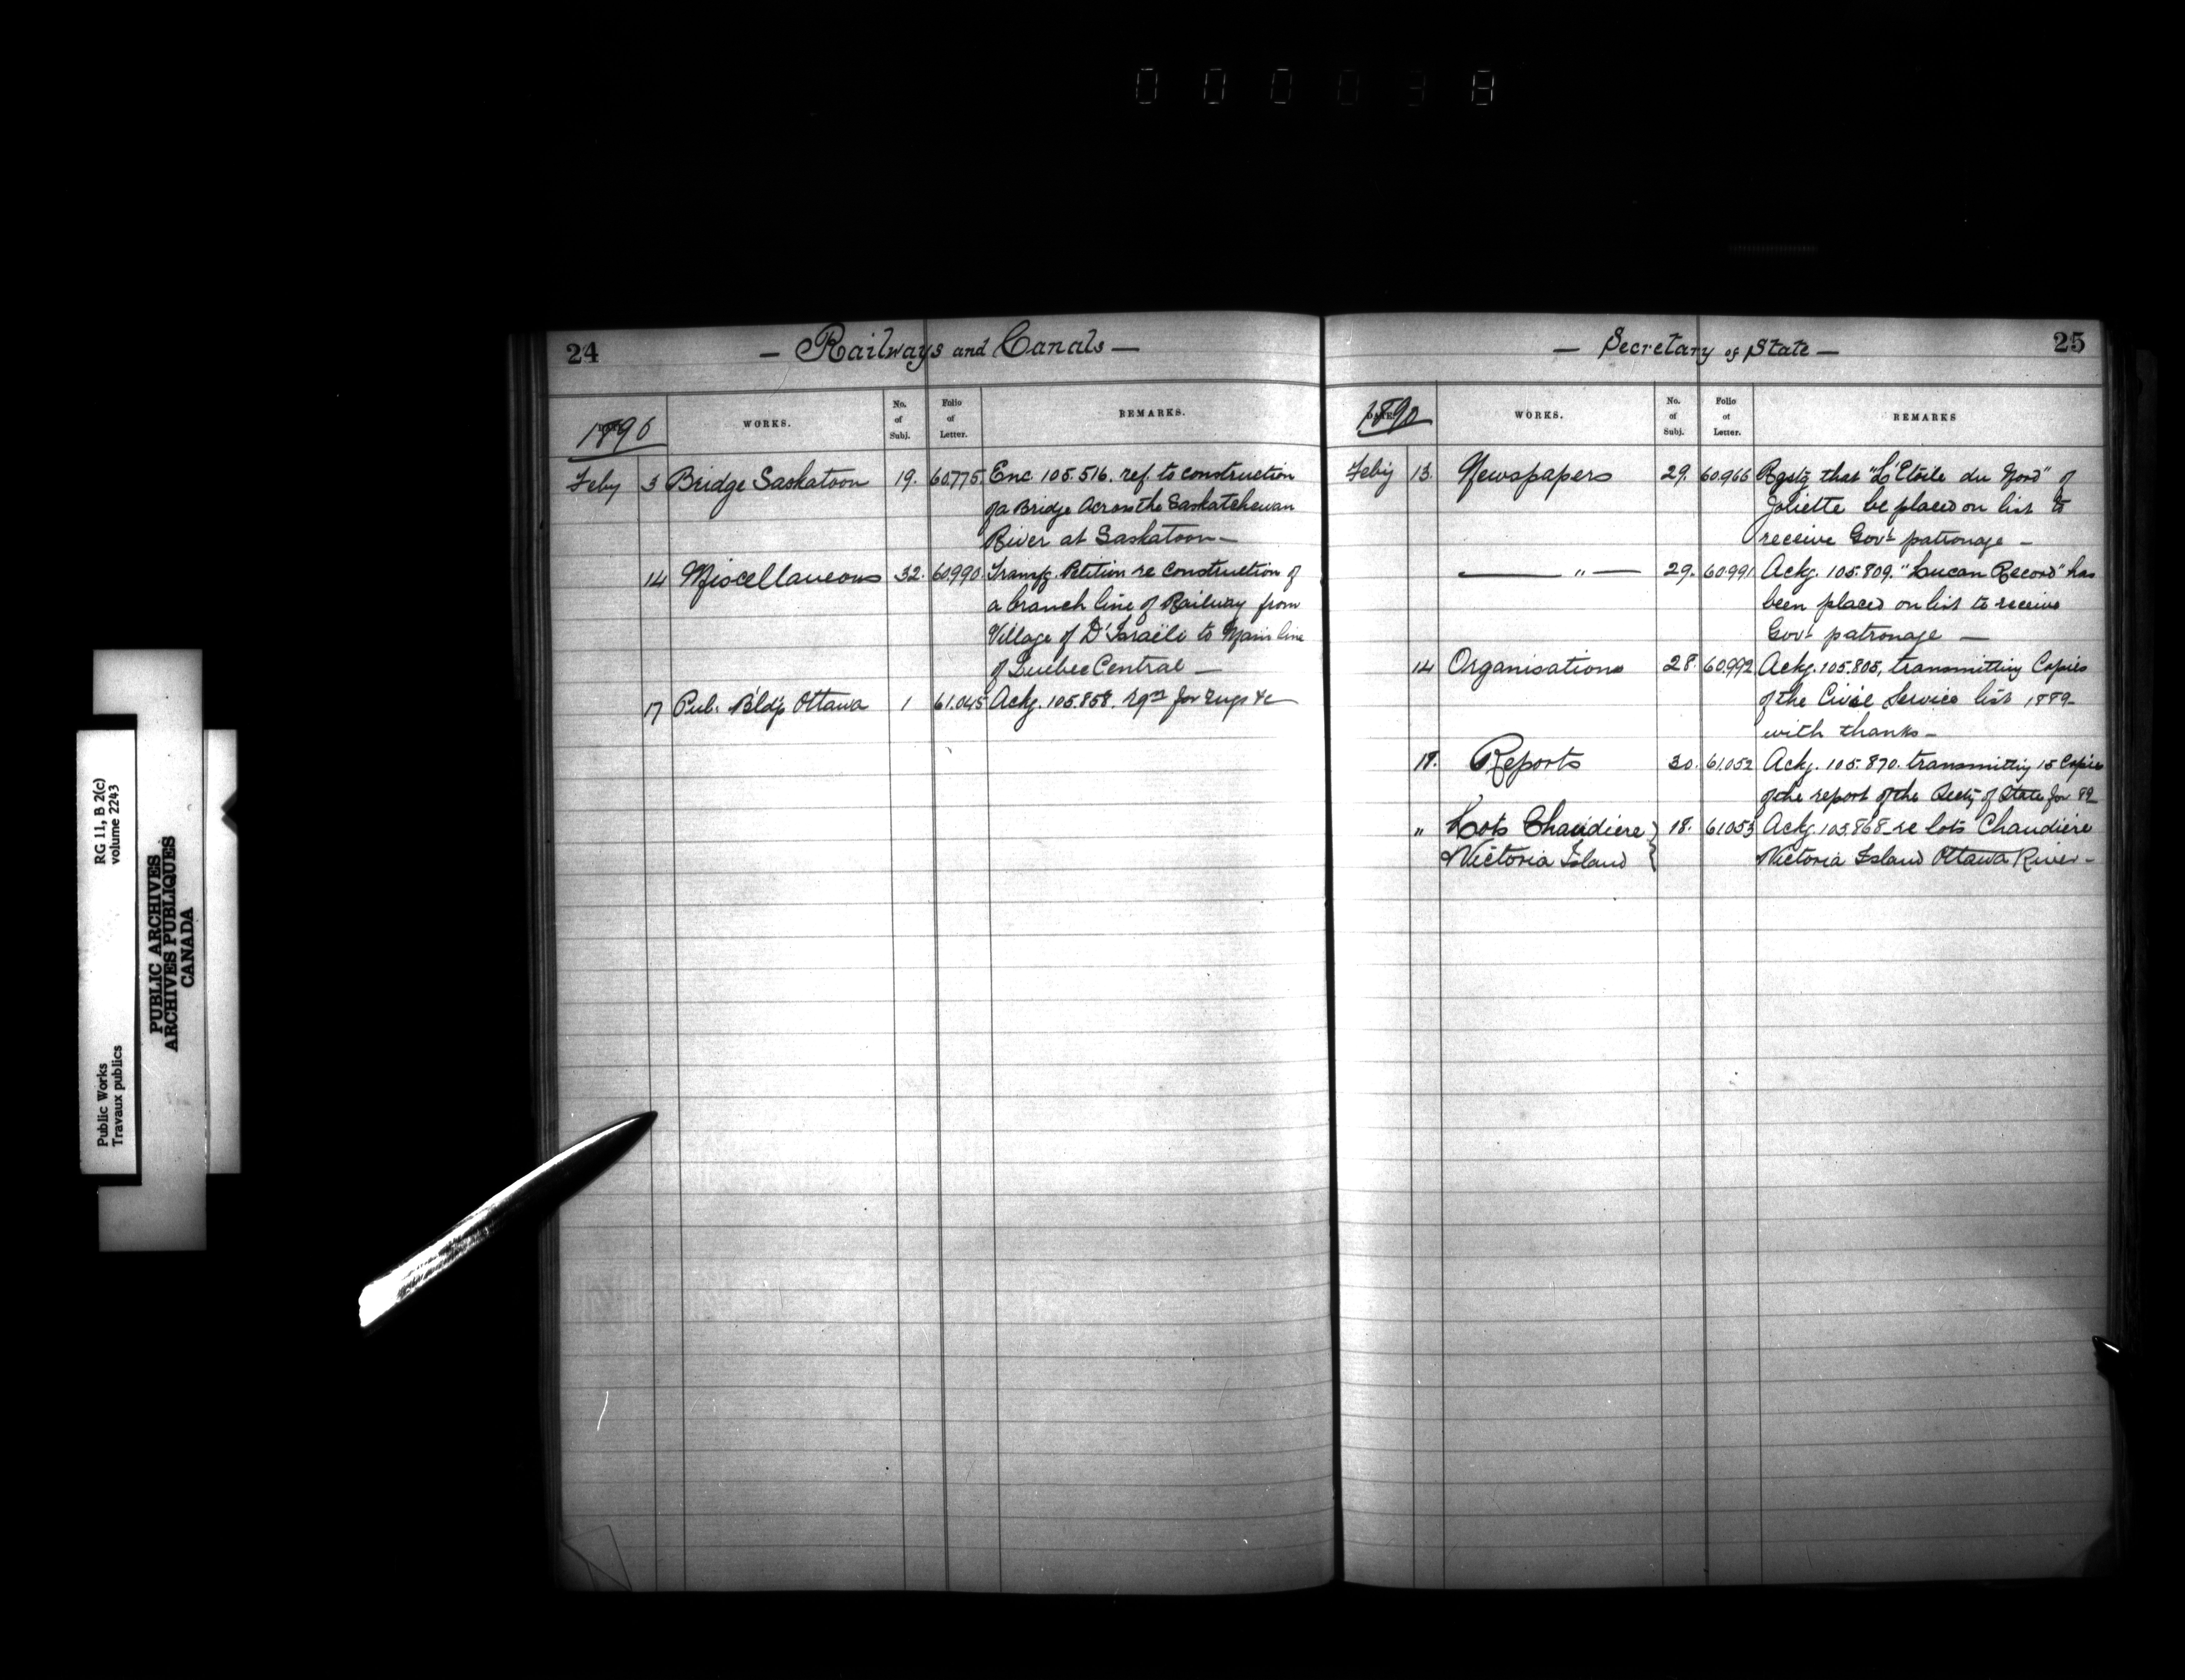 000038
PUBLIC ARCHIVES
ARCHIVES PUBLIQUES
CANADA
RG 11, B 2(c)
volume 2243
Public Works
Travaux publics
24
— Railways and Canals —
1890
WORKS. No. of Subj. Folio of Letter. REMARKS.
Feby 3 Bridge Saskatoon 19. 60.775. Enc. 105.516. ref. to construction
of a Bridge Across the Saskatchewan
River at Saskatoon —
14 Miscellaneous 32. 60.990. Transfg. Petition re construction of
a branch line of Railway from
Village of D'Israëli to Main line
of Quebec Central —
17 Pub. Bldg Ottawa 1 61.045 Ackg. 105.858. for &c —
25
— Secretary of State —
1890
WORKS. No. of Subj. Folio of Letter. REMARKS
Feby 13. Newspapers 29. 60.966 Rqstg that "L'Etoile du Nord" of
Joliette be placed on list to
receive Govt patronage —
— " — 29. 60.991 Ackg. 105.809. "Lucan Record" has
been placed on list to receive
Govt patronage —
14 Organisations 28. 60.992 Ackg. 105.805, transmitting Copies
of the Civil Service list 1889
with thanks —
18. Reports 30. 61.052 Ackg. 105.870. transmitting 15 Copies
of the report of the Secty of State for 89
" Lots Chaudiere } 18. 61.053 Ackg. 105.868 re lots Chaudiere
& Victoria Island } & Victoria Island Ottawa River —